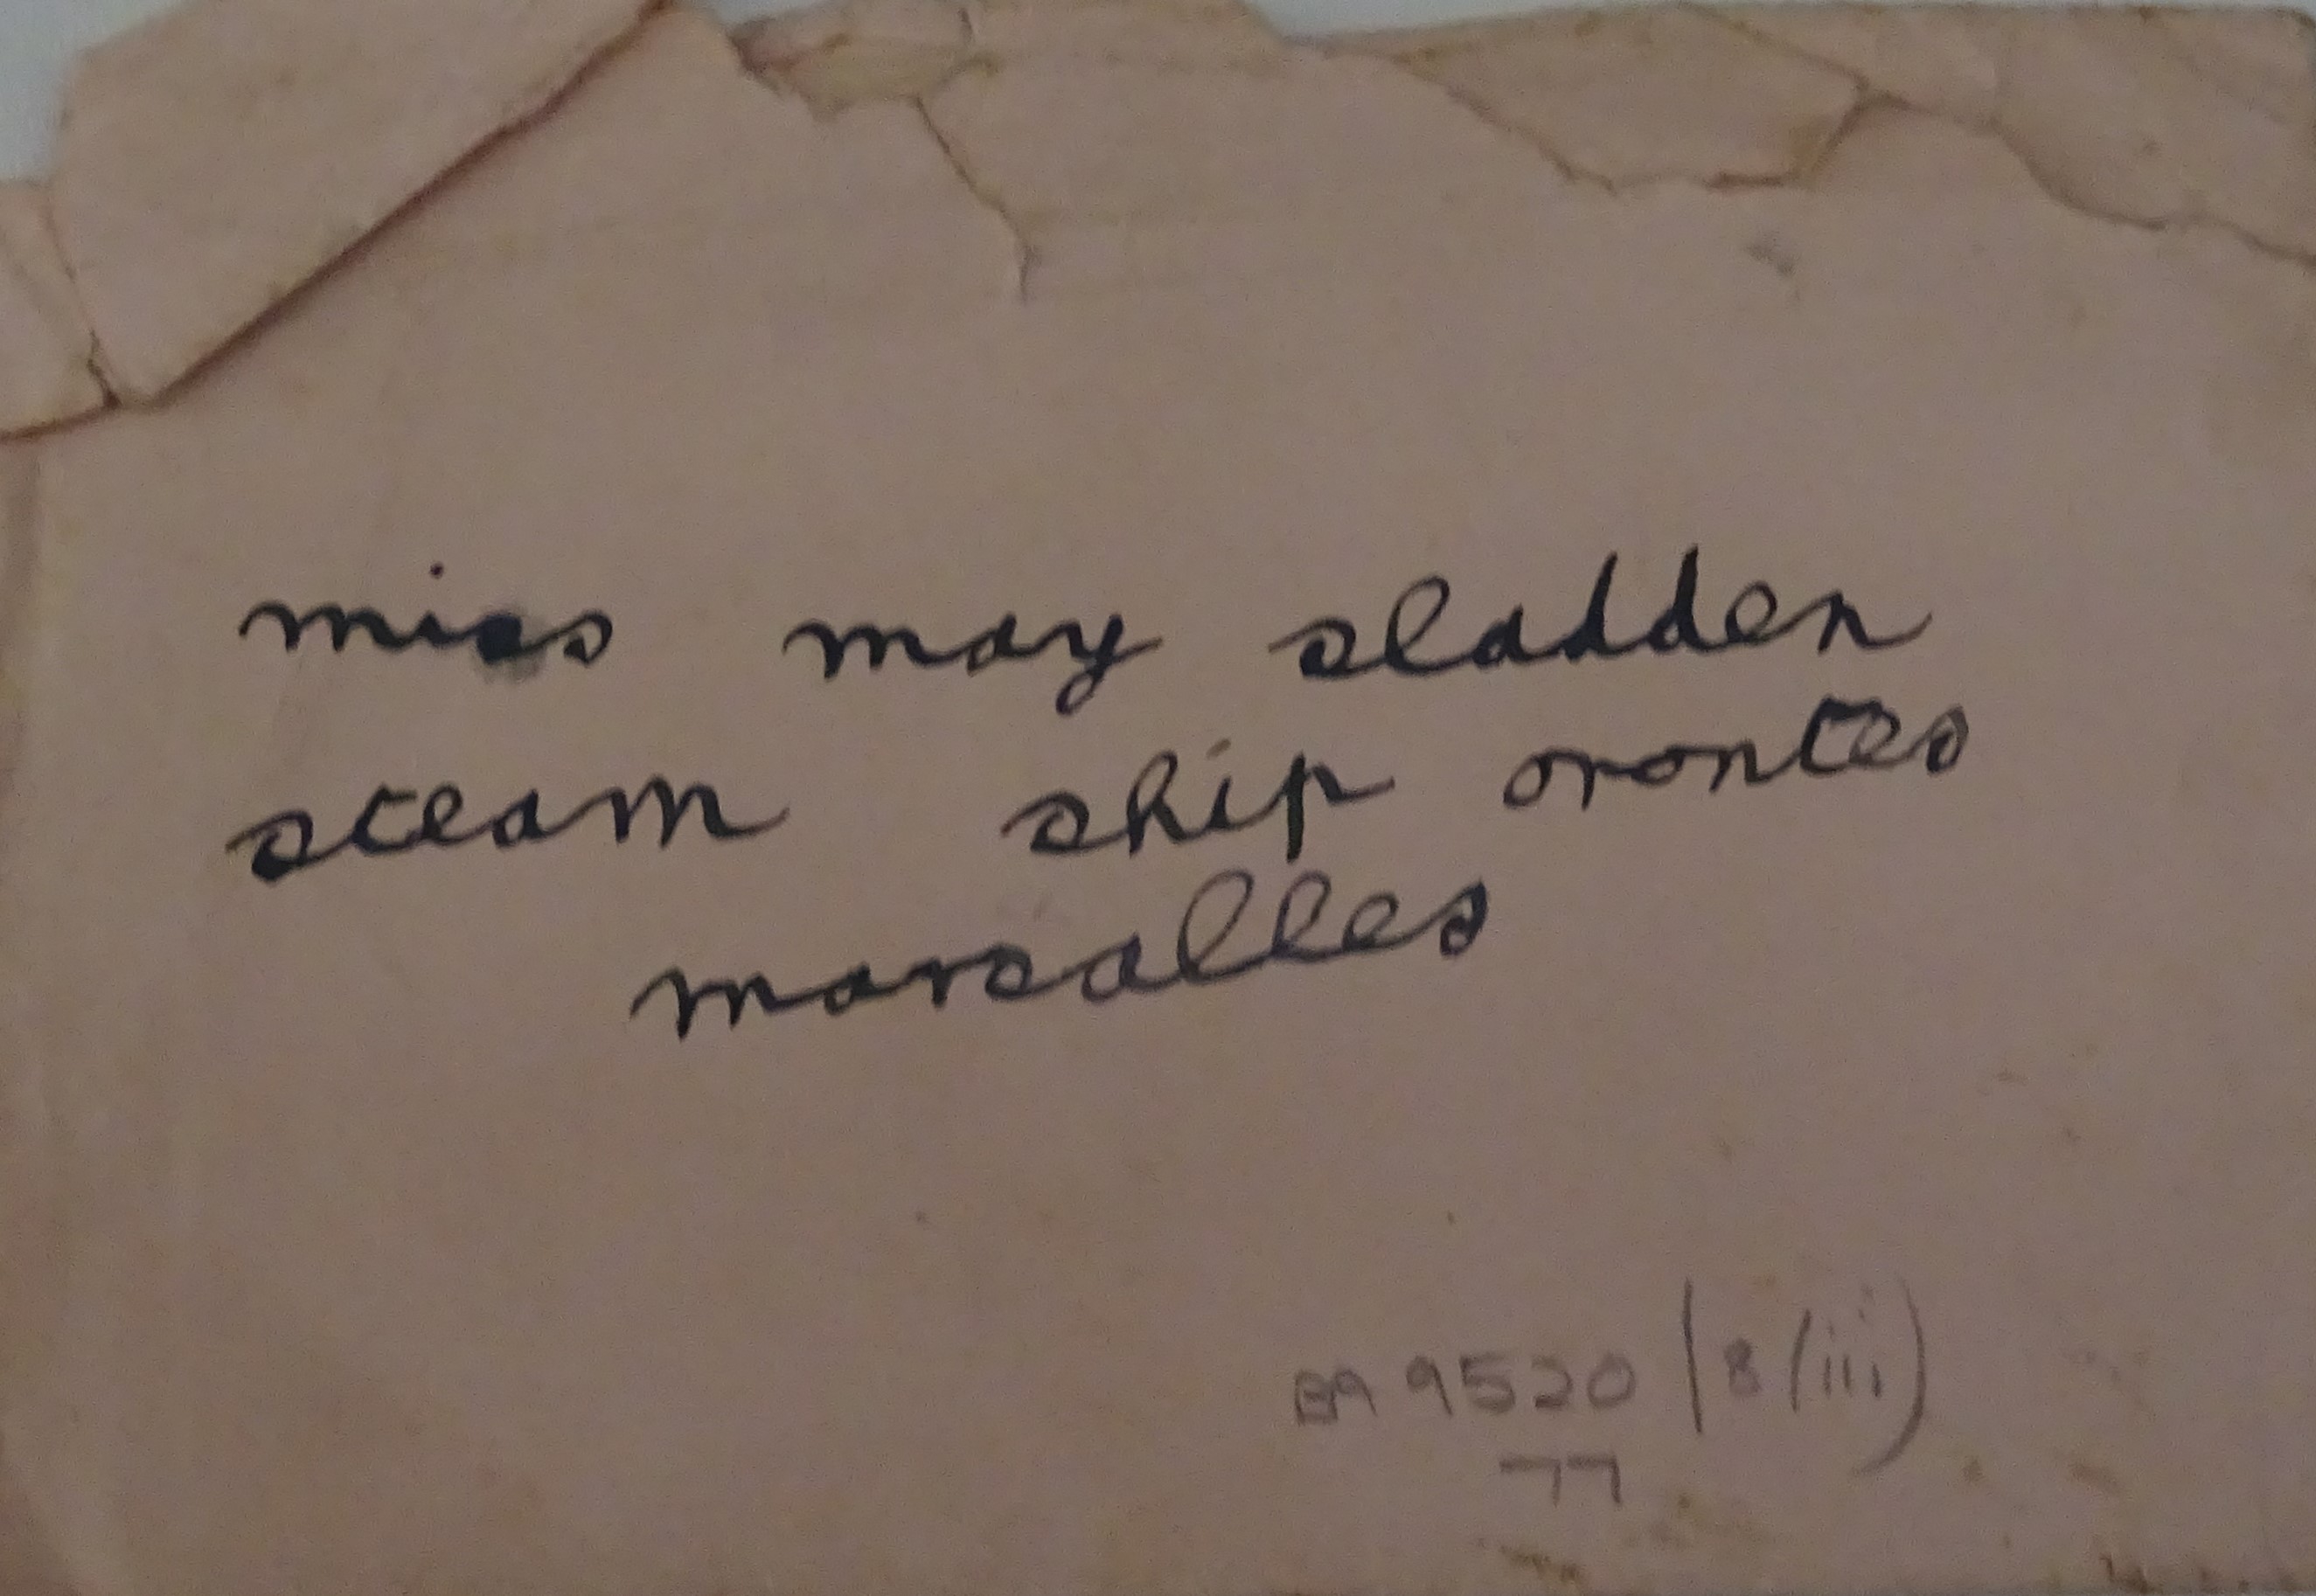 miss may sladden
steam ship orontes
marsalles
BA 9520 (8/iii)
77